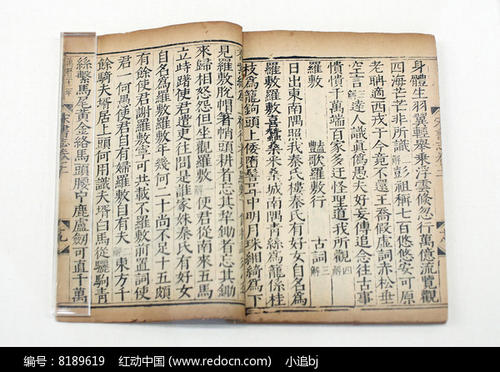 身體生羽翼輕舉乘浮雲倐忽行萬億流覽觀
四海芒芒非所識解彭祖稱七百悠悠安可原
老聃適西戎于今竟不還王喬假虛詞赤松垂
空言達人識真僞愚夫好妄傳追念往古事
憒憒千萬端百家多迂怪聖道我所觀四解
羅敷 豔歌羅敷行 古詞解
日出東南隅照我秦氏樓秦氏有好女自名爲
羅敷羅敷憙蠶桑采桑城南隅青絲爲籠係桂
枝爲籠鉤頭上倭墮髻耳中明月珠緗綺爲下
見羅敷脫帽著帩頭耕者忘其犁鋤者忘其鋤
來歸相怒怨但坐觀羅敷解使君從南來五馬
立踟躇使君遣吏往問是誰家姝秦氏有好女
自名爲羅敷羅敷年幾何二十尚不足十五頗
有餘使君謝羅敷寧可共載不羅敷前置詞使
君一何愚使君自有婦羅敷自有夫解東方千
餘騎夫壻居上頭何用識夫壻白馬從驪駒青
絲繫馬尾黃金絡馬頭腰中鹿盧劒可直千萬
宋書志卷二
编号：8189619 红动中国 (www.redocn.com) 小追bj